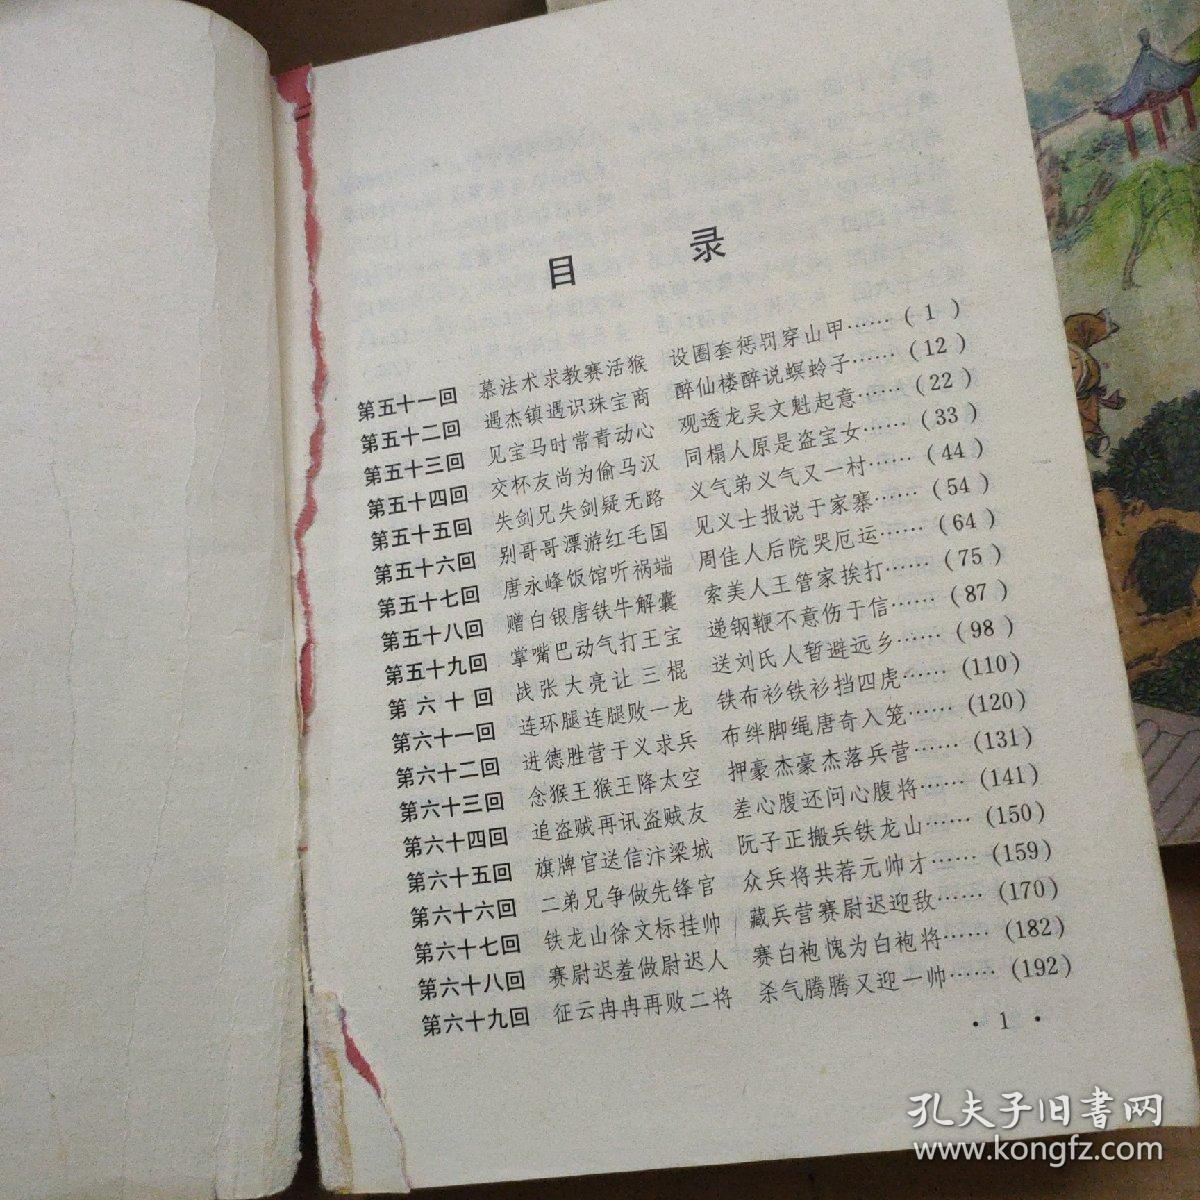 目 录
第五十一回 慕法术求教赛活猴 设圈套惩罚穿山甲……( 1 )
第五十二回 遇杰镇遇识珠宝商 醉仙楼醉说螟蛉子……(12)
第五十三回 见宝马时常青动心 观透龙吴文魁起意……(22)
第五十四回 交杯友尚为偷马汉 同榻人原是盗宝女……(33)
第五十五回 失剑兄失剑疑无路 义气弟义气又一村……(44)
第五十六回 别哥哥漂游红毛国 见义士报说于家寨……(54)
第五十七回 唐永峰饭馆听祸端 周佳人后院哭厄运……(64)
第五十八回 赠白银唐铁牛解囊 索美人王管家挨打……(75)
第五十九回 掌嘴巴动气打王宝 递钢鞭不意伤于信……(87)
第六十回 战张大亮让三棍 送刘氏人暂避远乡……(98)
第六十一回 连环腿连腿败一龙 铁布衫铁衫挡四虎……(110)
第六十二回 进德胜营于义求兵 布绊脚绳唐奇入笼……(120)
第六十三回 念猴王猴王降太空 押豪杰豪杰落兵营……(131)
第六十四回 追盗贼再讯盗贼友 差心腹还问心腹将……(141)
第六十五回 旗牌官送信汴梁城 阮子正搬兵铁龙山……(150)
第六十六回 二弟兄争做先锋官 众兵将共荐元帅才……(159)
第六十七回 铁龙山徐文标挂帅 藏兵营赛尉迟迎敌……(170)
第六十八回 赛尉迟羞做尉迟人 赛白袍愧为白袍将……(182)
第六十九回 征云冉冉再败二将 杀气腾腾又迎一帅……(192)
· 1 ·
孔夫子旧书网
www.kongfz.com